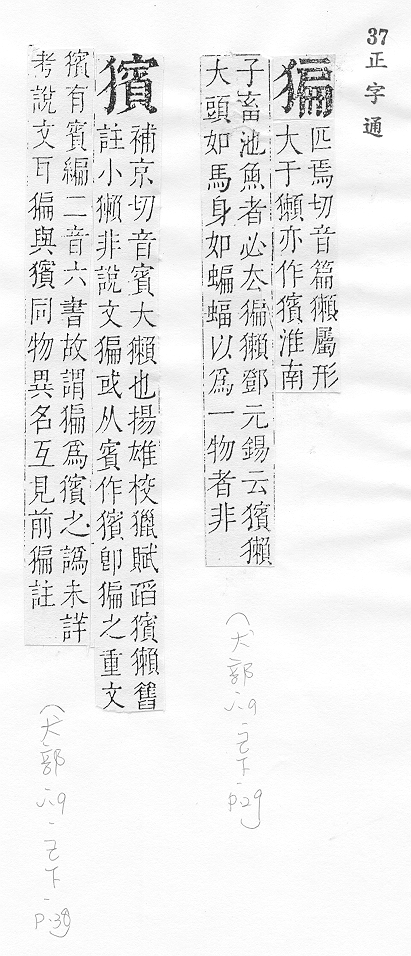 37
正字通
猵
匹焉切音篇獺屬形
大于獺亦作獱淮南
子畜池魚者必厺猵獺鄧元錫云獱獺
大頭如馬身如蝙蝠以爲一物者非
(犬部
下
p.29
獱
補京切音賓大獺也揚雄校獵賦蹈獱獺舊
註小獺非說文猵或从賓作獱卽猵之重文
獱有賓編二音六書故謂猵爲獱之譌未詳
考說文猵與獱同物異名互見前猵註
(犬部
下